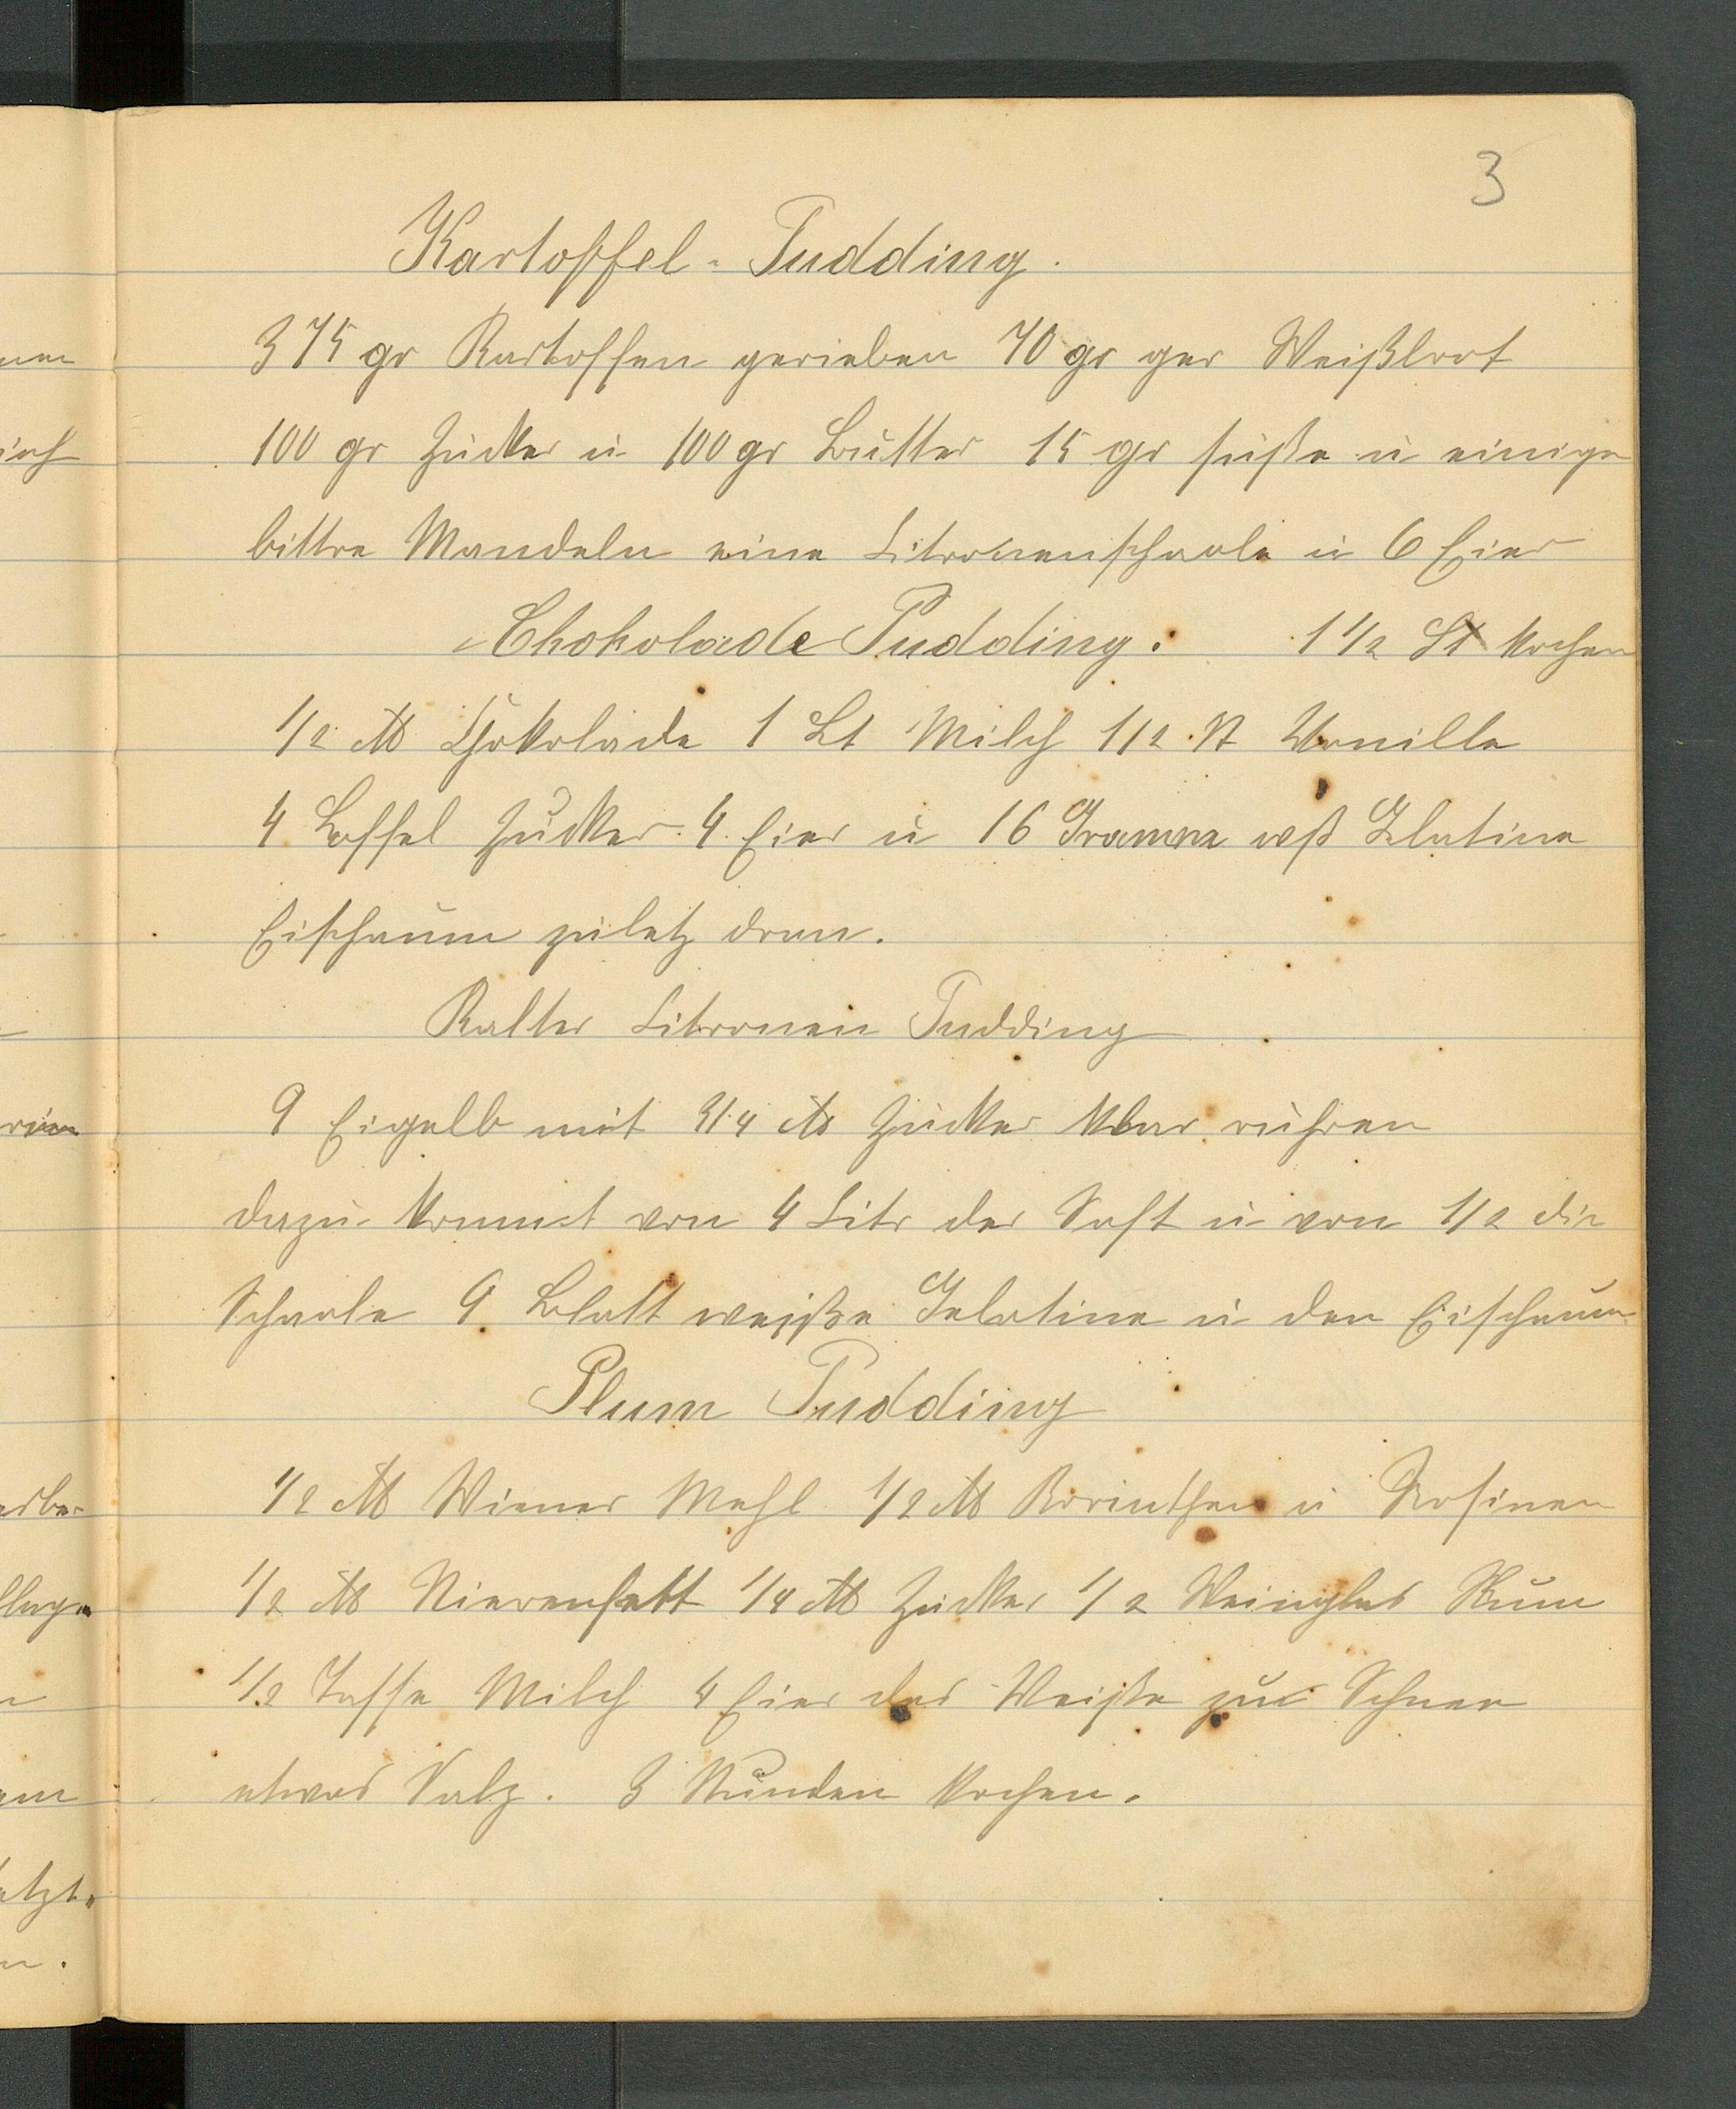 3
Kartoffel-Pudding.
375 gr Kartoffen gerieben 70 gr ger Weißbrot
100 gr Zucker u 100 gr Butter 15 gr süße u einige
bittre Mandeln eine Citronenschaale u 6 Eier
Chokolade Pudding. 1 1/2 St kochen
1/2 ℔ Chokolade 1 Lt Milch 1/2 St Vanille
4 Loffel Zucker 4 Eier u 16 Gramme wß Gelatine
Eischaum zuletz dran.
Kalter Citronen Pudding
9 Eigelb mit 3/4 ℔ Zucker klar rühren
dazu kommt von 4 Citr der Saft u von 1/2 die
Schaale 9 Blatt weiße Gelatine u den Eischaum
Plum Pudding
1/2 ℔ Wiener Mehl 1/2 ℔ Korinthen u Rosinen
1/2 ℔ Nierenfett 1/4 ℔ Zucker 1/2 Weinglas Rum
1/2 Tasse Milch 4 Eier das Weiße zu Schnee
etwas Salz. 3 Stunden kochen.